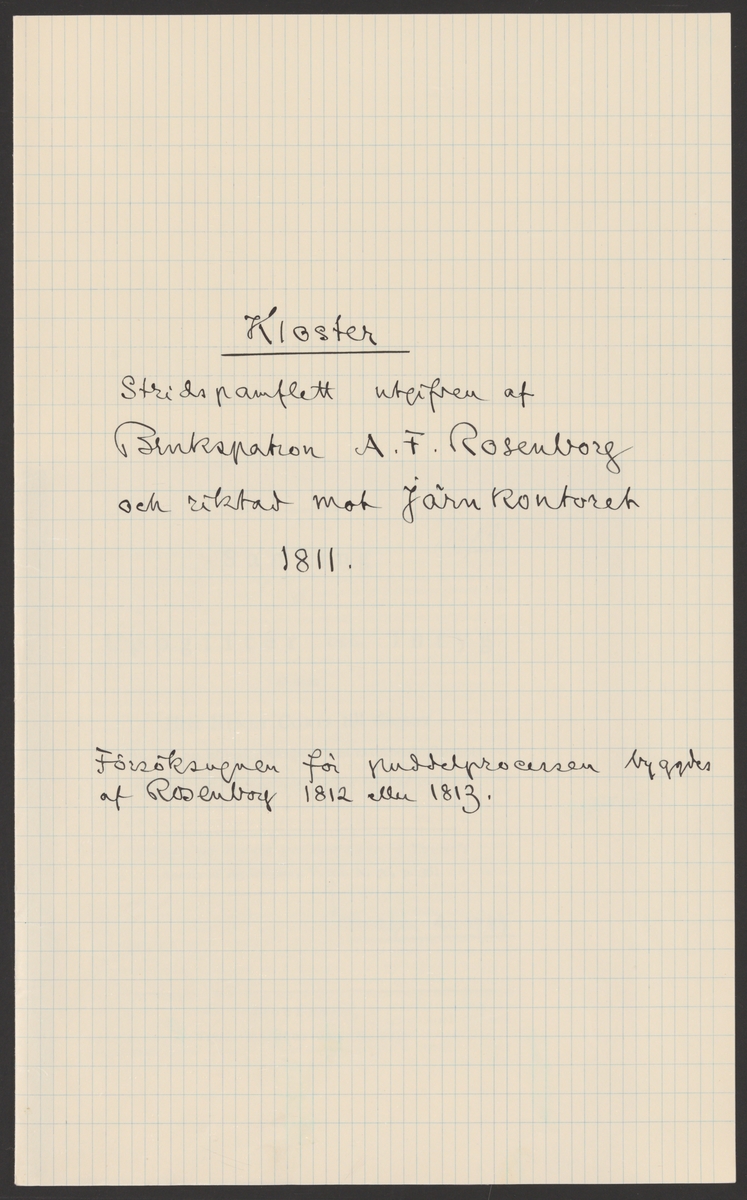 Kloster
Stridspamflett utgifven af
Brukspatron A. F. Rosenborg
och riktad mot Järnkontoret
1811.
Försöksugnen för puddelprocessen byggdes
af Rosenborg 1812 eller 1813.